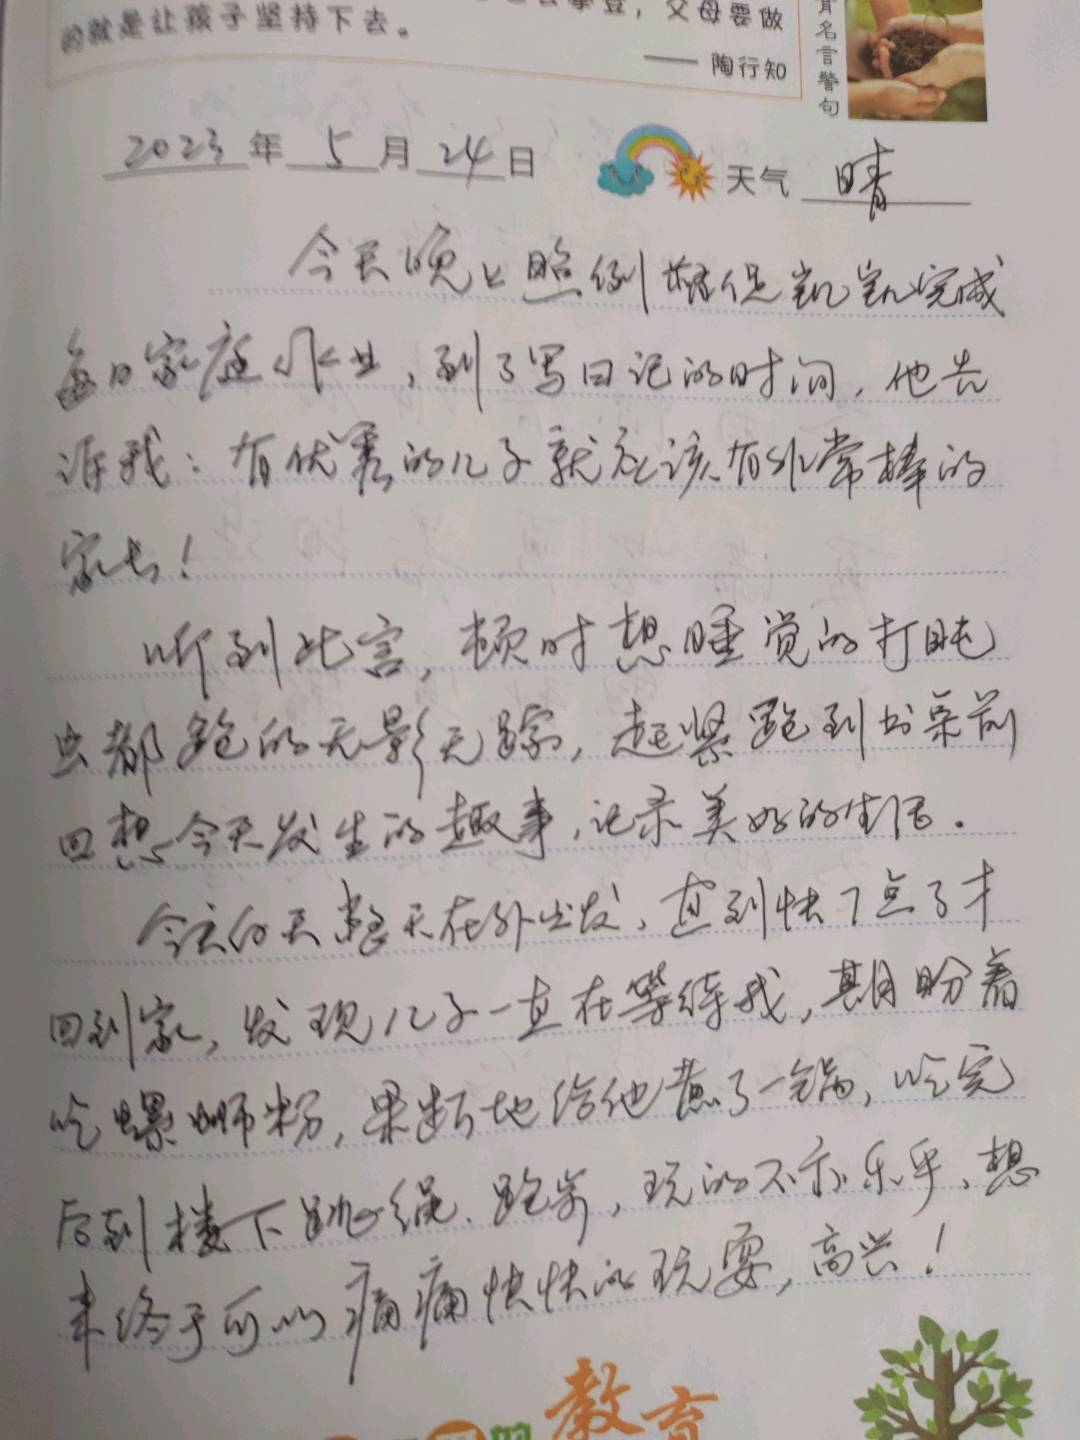 父母要做
的就是让孩子坚持下去。
—— 陶行知
育名言警句
2023年5月24日 天气 晴
今天晚上照例督促凯凯完成
每日家庭作业，到了写日记的时间，他告
诉我：有优秀的儿子就应该有非常棒的
家长！
听到此言，顿时想睡觉的打盹
虫都跑的无影无踪，赶紧跑到书桌前
回想今天发生的趣事，记录美好的生活.
今天白天整天在外出发，直到快7点了才
回到家，发现儿子一直在等待我，期盼着
吃螺蛳粉，果断地给他煮了一锅，吃完
后到楼下跳绳、跑步，玩的不亦乐乎、想
来终于可以痛痛快快的玩耍，高兴！
教育